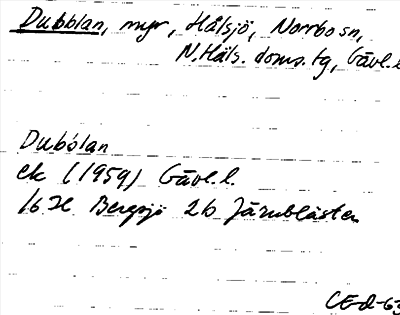 Dubblan, myr, Hålsjö, Norrbo sn,
N.Häls. doms. tg, Gävl. l.
Dubblan
ek (1959) Gävl. l.
16H Bergsjö 2b Järnblästen
CE-d-63